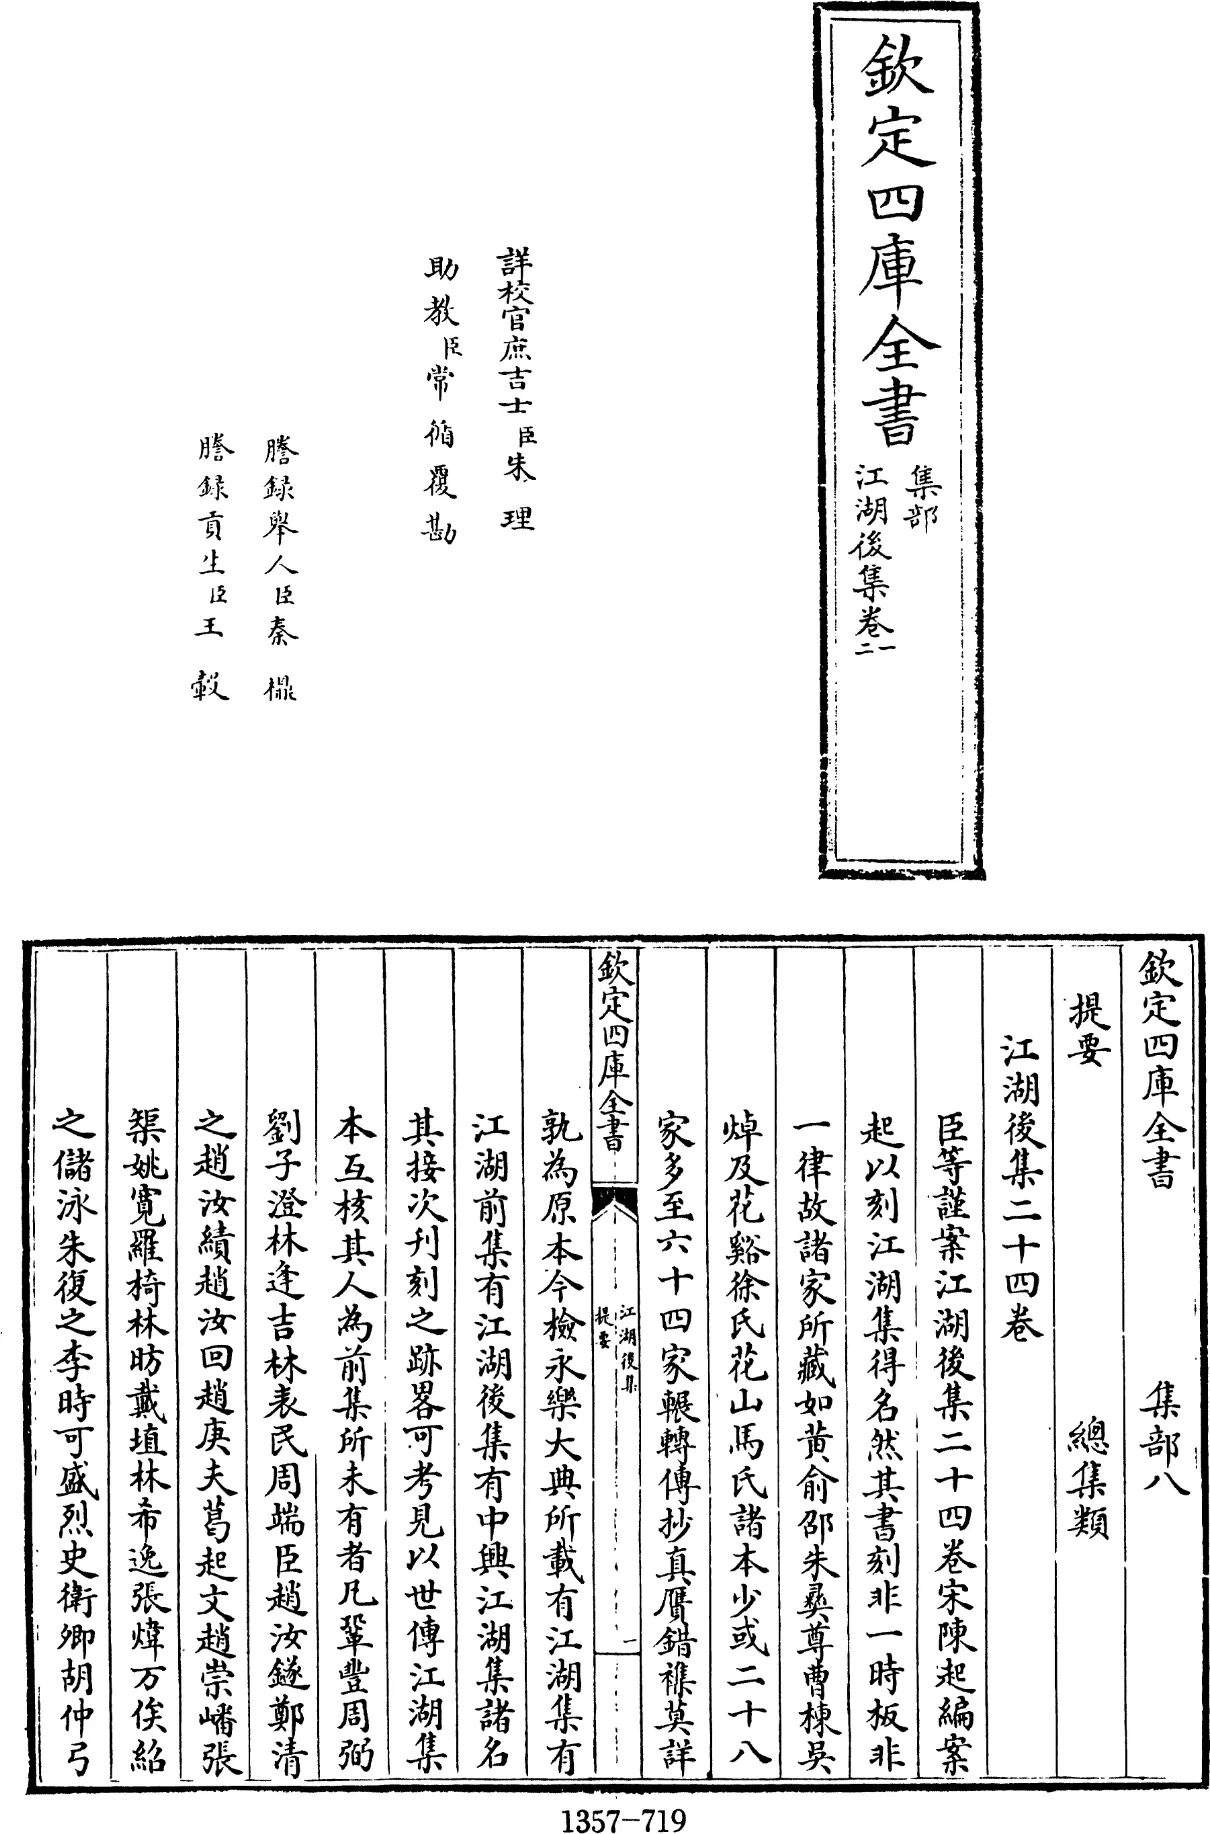 欽定四庫全書
集部
江湖後集卷一
二
詳校官庶吉士臣朱理
助教臣常循覆勘
謄録舉人臣秦榥
謄録貢生臣王轂
欽定四庫全書　集部八
提要　總集類
江湖後集二十四卷
臣等謹案江湖後集二十四卷宋陳起編案
起以刻江湖集得名然其書刻非一時板非
一律故諸家所藏如黄俞邵朱彛尊曹棟吳
焯及花谿徐氏花山馬氏諸本少或二十八
家多至六十四家輾轉傳抄真贋錯襍莫詳
欽定四庫全書
江湖後集
提要
一
孰為原本今檢永樂大典所載有江湖集有
江湖前集有江湖後集有中興江湖集諸名
其接次刋刻之跡畧可考見以世傳江湖集
本互核其人為前集所未有者凡鞏豐周弼
劉子澄林逢吉林表民周端臣趙汝鐩鄭清
之趙汝績趙汝回趙庚夫葛起文趙崇嶓張
榘姚寛羅椅林昉戴埴林希逸張煒万俟紹
之儲泳朱復之李時可盛烈史衛卿胡仲弓
1357-719